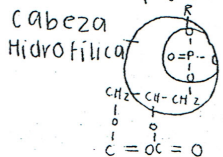 cabeza
Hidrofílica
R
O
O=P--
O
CH2 - CH - CH2
O O
C = OC = O